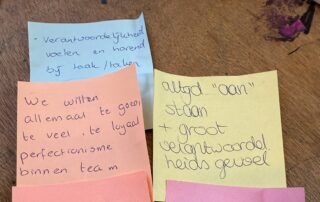 - verantwoordelijkheid
voelen en horend
bij taak/taken
We willen
allemaal te goed
te veel, te loyaal
perfectionisme
binnen team
altijd "aan"
staan
+ groot
verantwoordel
heids gevoel